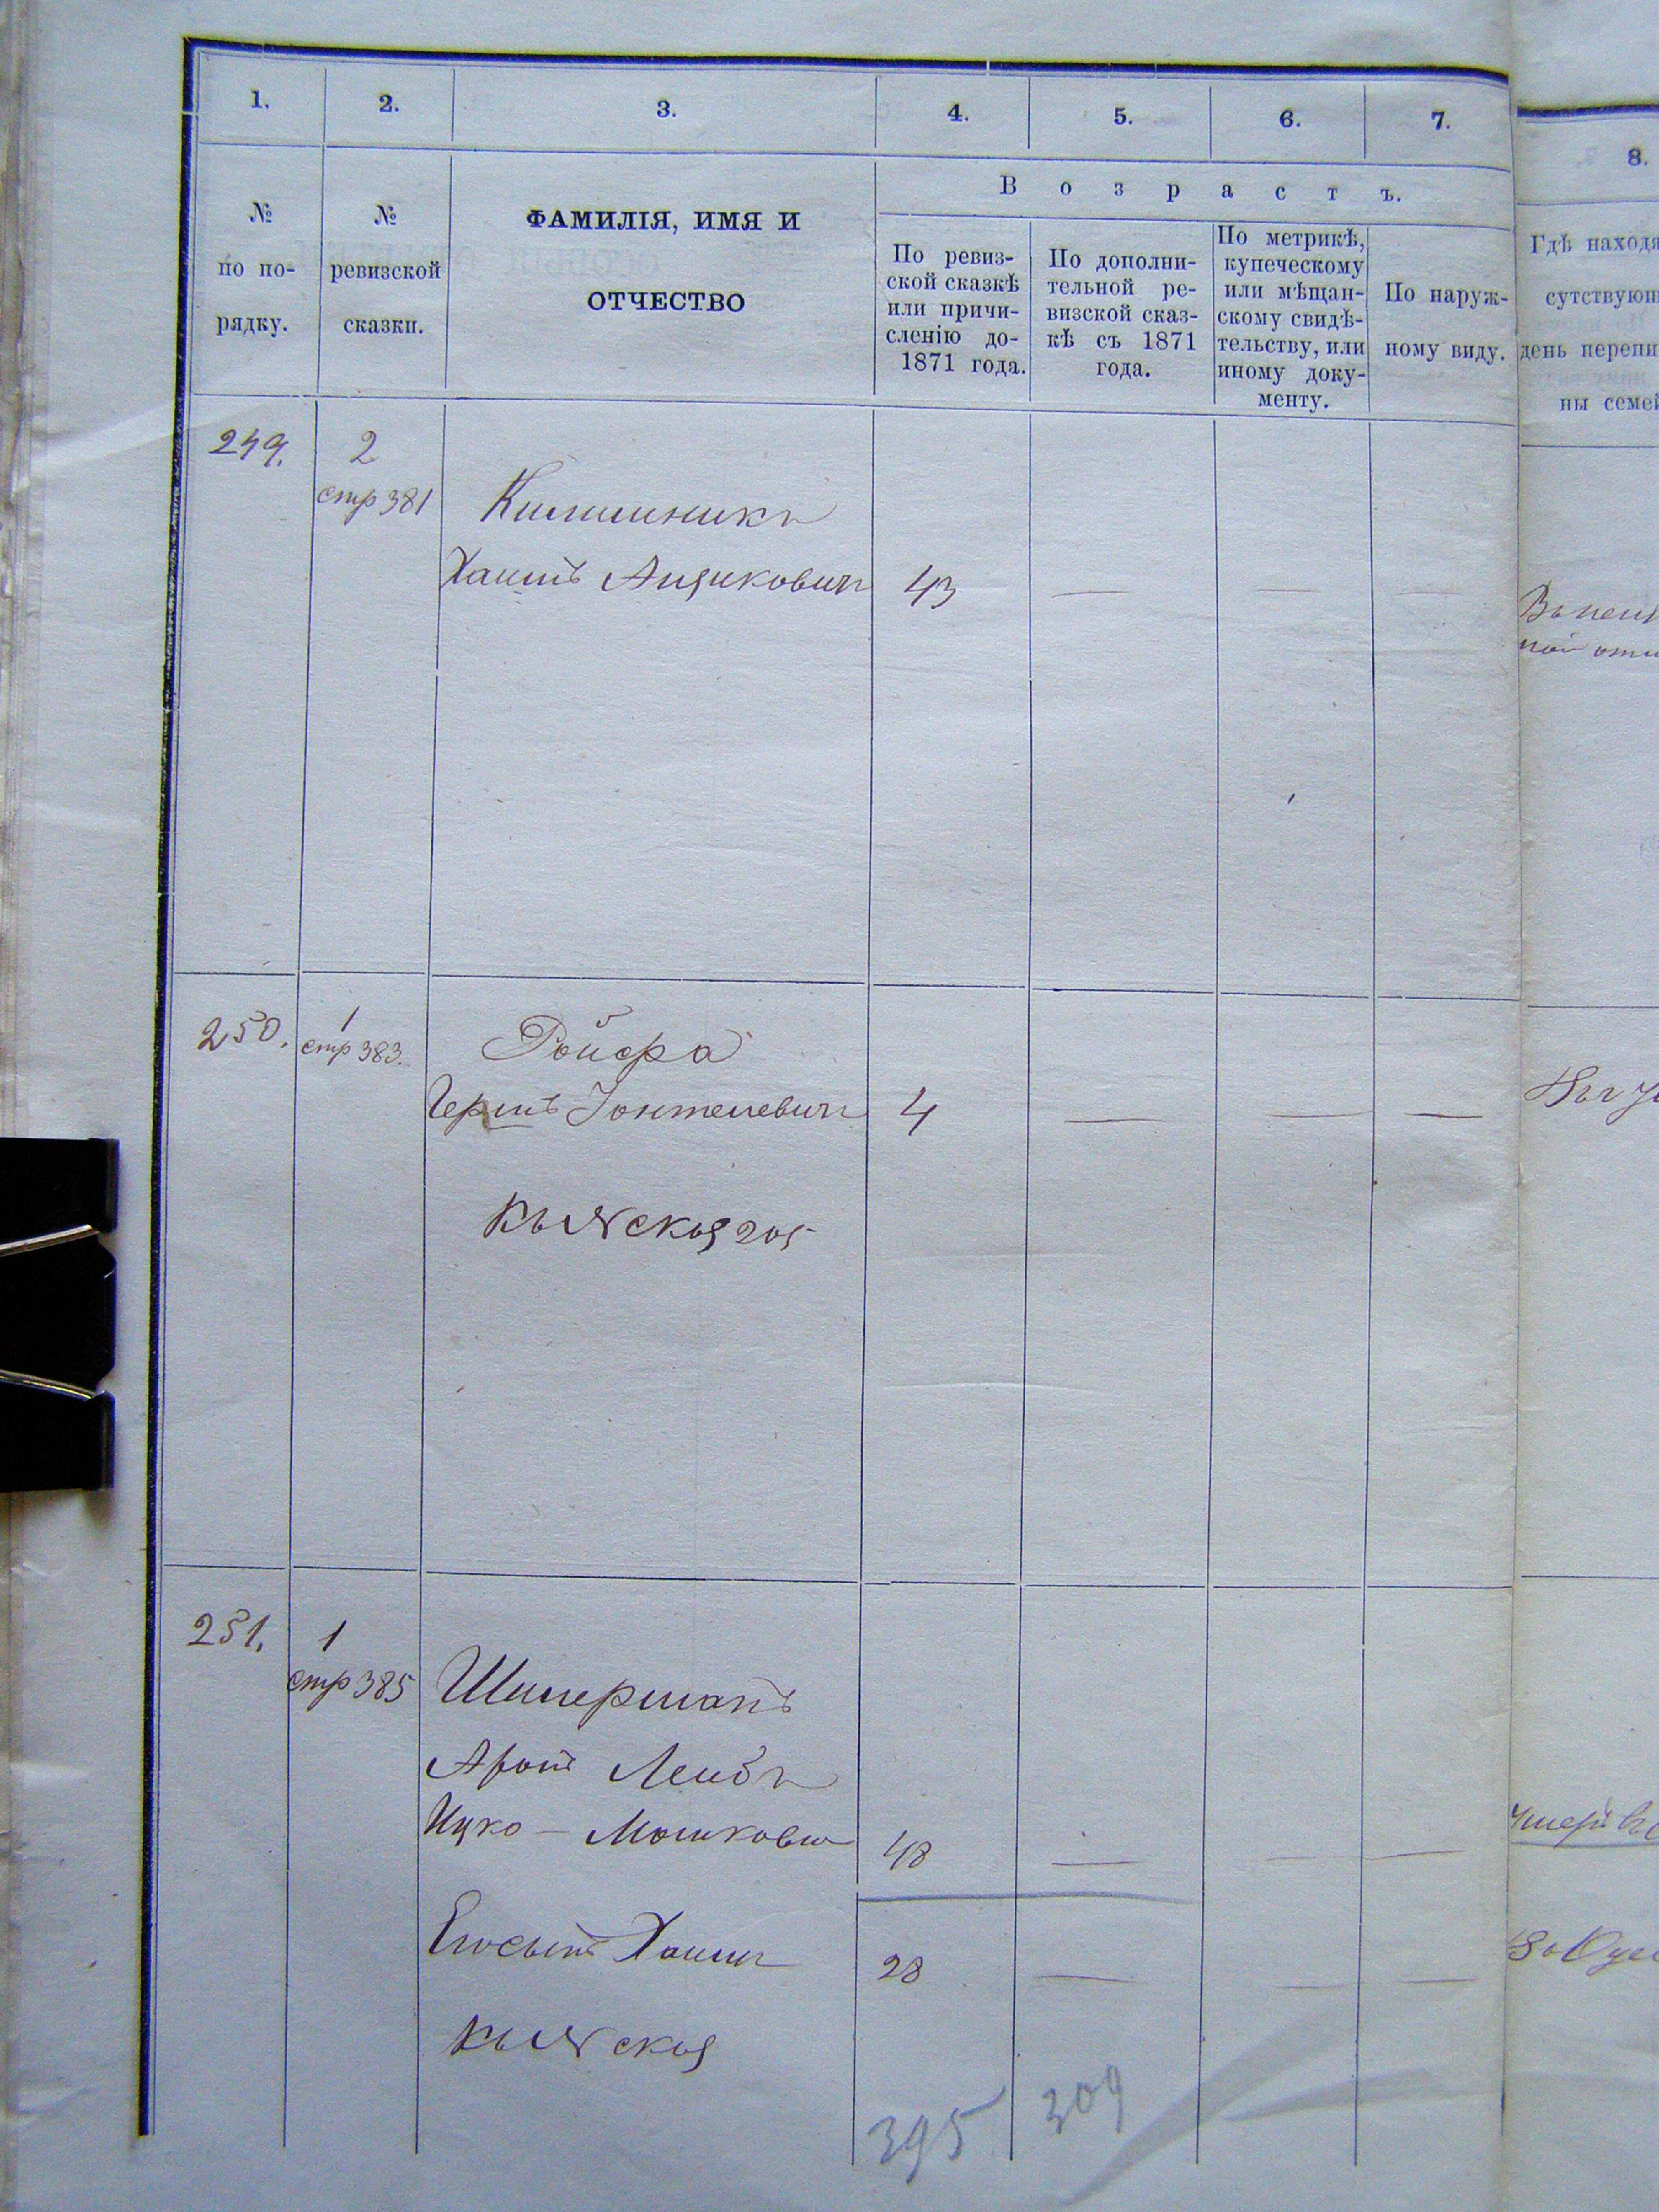 1. 2. 3. 4. 5. 6. 7. 8.
№ по по-рядку.
№ ревизской сказки.
ФАМИЛІЯ, ИМЯ И
ОТЧЕСТВО
В о з р а с т ъ.
По ревиз-
ской сказкѣ
или причи-
сленію до-
1871 года.
По дополни-
тельной ре-
визской сказ-
кѣ съ 1871
года.
По метрикѣ,
купеческому
или мѣщан-
скому свидѣ-
тельству, или
иному доку-
менту.
По наруж-
ному виду.
Гдѣ находя
сутствующ
день перепи
ны семей
249. 2
стр 381
Килимникъ
Хаимъ Ицковичъ 43
250. 1
стр 383.
Ройфа
Гершъ Іонтелевичъ 4
205
251. 1
стр 385
Шимерманъ
Аронъ Лейбъ
Ицко - Мошковъ 48
Хаимъ 28
395 309